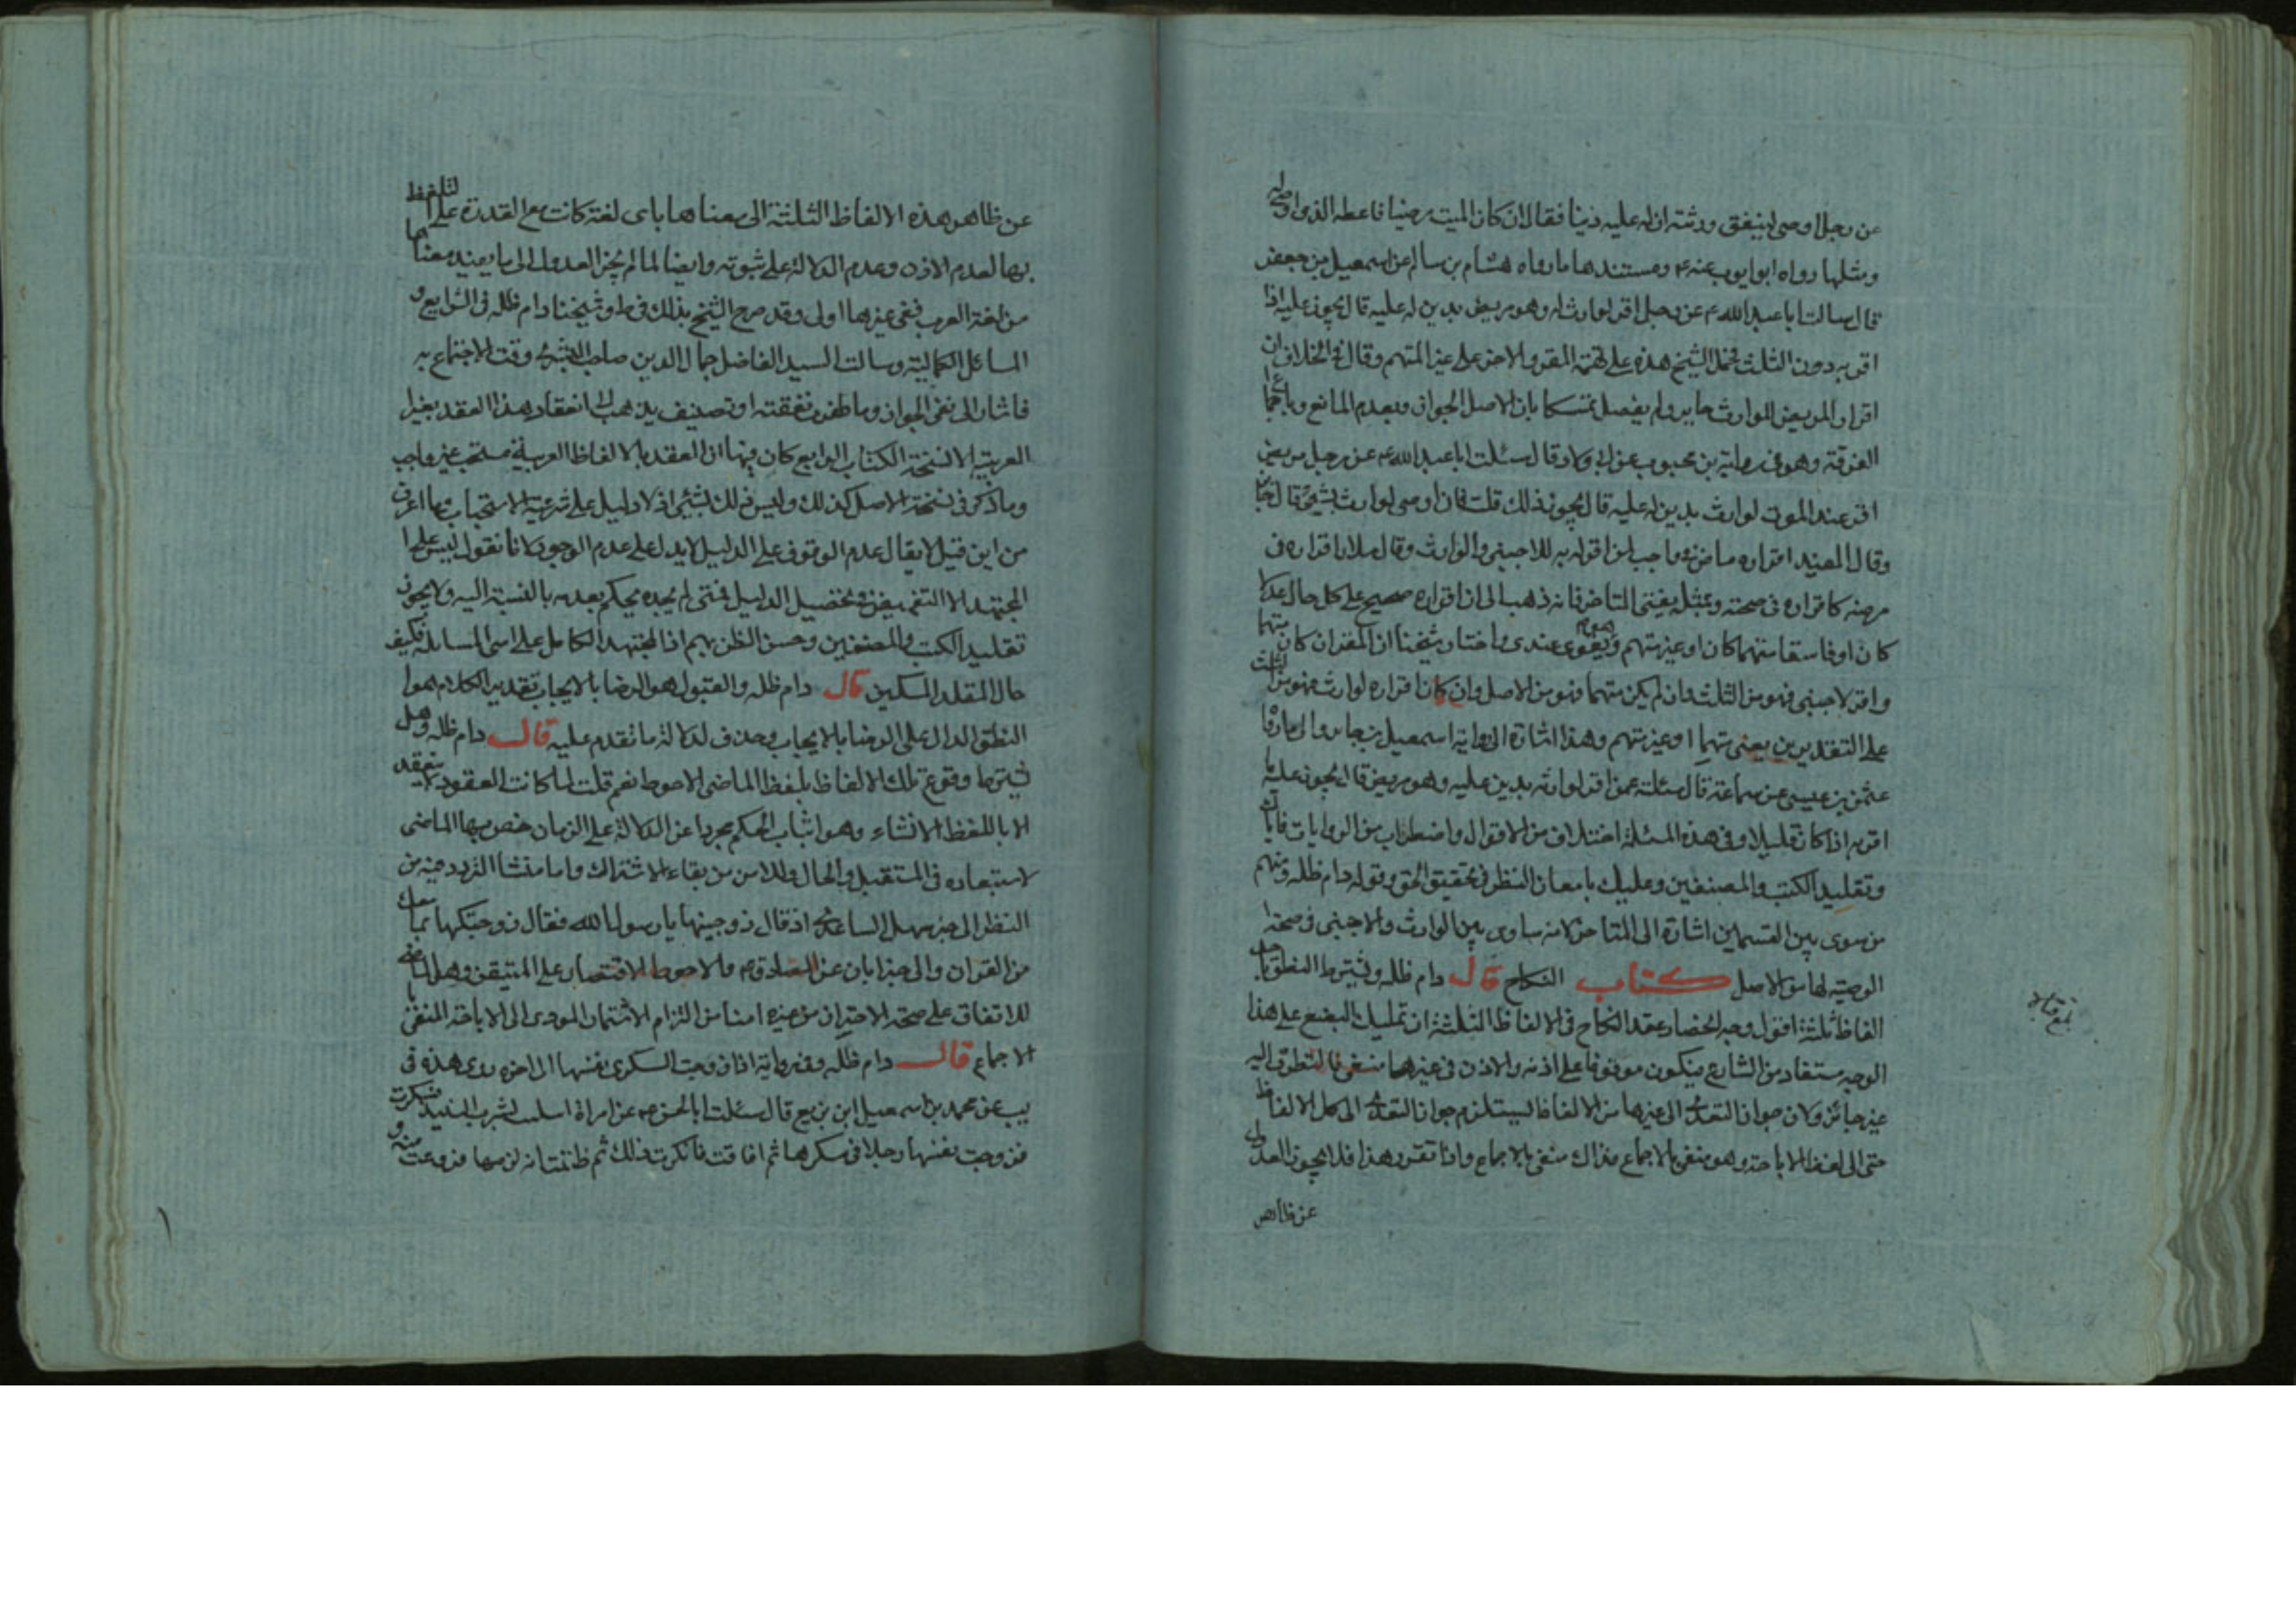 عن رجل اوصى لبعض ورثته ان له عليه دينا فقال ان كان الميت مرضيا فاعطه الذى اوصى له
ومثلها رواه ابو ايوب عنه ع ومستندها ما رواه هشام بن سالم عن اسمعيل بن جعفر
قال سالت ابا عبد الله ع عن رجل اقر لوارث له وهو مريض بدين له عليه قال يجوز عليه اذا
اقر به دون الثلث فحمل الشيخ هذه على تهمة المقر والاخر على غير المتهم وقال فى الخلاف ان
اقرار المريض للوارث جايز ولم يفصل تمسكا بان الاصل الجواز وبعدم المانع وباجماع
الفرقة وهو فى رواية بن محبوب عن ابى ولاد قال سئلت ابا عبد الله ع عن رجل مريض
اقر عند الموت لوارث بدين له عليه قال يجوز ذلك قلت فان اوصى لوارث بشئ قال جايز
وقال المفيد اقراره ماض واجب لمن اقر له به للاجنبى والوارث وقال سلار اقراره فى
مرضه كاقراره فى صحته وبمثله يفتى المتاخر فانه ذهب الى ان اقراره صحيح على كل حال عدلا
كان او فاسقا متهما كان او غير متهم وهو يقوى عندى واختار شيخنا ان المقر ان كان متهما
واقر لاجنبى فهو من الثلث وان لم يكن متهما فهو من الاصل وان كان اقراره لوارث فهو من الثلث
على التقديرين يعنى متهما او غير متهم وهذا اشارة الى رواية اسمعيل بن جابر والى ما رواه
عثمن بن عيسى عن سماعة قال سئلته عمن اقر لوارثه بدين عليه وهو مريض قال يجوز عليه ما
اقر به اذا كان قليلا وفى هذه المسئلة اختلاف من الاقوال واضطراب من الروايات فاياك
وتقليد الكتب والمصنفين وعليك بامعان النظر فى تحقيق الحق وقوله دام ظله ومنهم
من سوى بين القسمين اشارة الى المتاخر لانه ساوى بين الوارث والاجنبى فى صحة
الوصية لهما من الاصل كتاب النكاح قال دام ظله ويشترط النطق باحد
الفاظ ثلثة اقول وجه انحصار عقد النكاح فى الالفاظ الثلثة ان تمليك البضع على هذا
الوجه مستفاد من الشارع فيكون موقوفا على اذنه والاذن فى غيرهما منتفى فالتطرق اليه
غير جائز ولان جواز التعدى الى غيرها من الالفاظ يستلزم جواز التعدى الى كل الالفاظ
حتى الى لفظ الاباحة وهو منفى بالاجماع فذاك منفى بالاجماع واذا تقرر هذا فلا يجوز العدول
عن ظاهر
عن ظاهر هذه الالفاظ الثلثة الى معناها باى لغة كانت مع القدرة على التلفظ
بها لعدم الاذن وعدم الدلالة على ثبوته وايضا لما لم يجز العدول الى ما يفيد معناها
من لغة العرب ففى غيرها اولى وقد صرح الشيخ بذلك فى ط وشيخنا دام ظله فى الشرايع و
المسائل الكمالية وسالت السيد الفاضل جمال الدين صاحب البشرى وقت الاجتماع به
فاشار الى نفى الجواز وما ظفرت بفقيه او تصنيف يذهب الى انعقاد هذا العقد بغير
العربية الا نسخة الكتاب الرابع كان فيها ان العقد بالالفاظ العربية مستحب غير واجب
وما ذكر فى نسخة الاصل كذلك وليس ذلك بشئ اذ لا دليل على شرعية الاستحباب وما اعرف
من اين قيل لا يقال عدم الوقوف على الدليل لا يدل على عدم الوجود لانا نقول ليس على
المجتهد الا التفحص وتحصيل الدليل فمتى لم يجده يحكم بعدمه بالنسبة اليه ولا يجوز
تقليد الكتب والمصنفين وحسن الظن بهم اذ المجتهد الكامل على اسى المسايل فكيف
حال المقلد المسكين قال دام ظله والقبول هو الرضا بالايجاب تقدير الكلام هو
النطق الدال على الرضا بالايجاب وحذف لدلالة ما تقدم عليه قال دام ظله وهل
يشترط وقوع تلك الالفاظ بلفظ الماضى الاحوط نعم قلت لما كانت العقود لا ينعقد
الا باللفظ الانشاء وهو اثبات الحكم مجردا عن الدلالة على الزمان خص بها الماضى
لاستبعاده فى المستقبل والحال وللامن من بقاء الاشتراك واما منشا التردد فيه من
النظر الى خبر سهل الساعدى اذ قال زوجنيها يا رسول الله فقال زوجتكها بما معك
من القران والى خبر ابان عن الصادق ع والاحوط الاقتصار على المتيقن وهو الماضى
للاتفاق على صحته الاحتراز من غيره امنا من التزام الائتمان المودى الى الاباحة المنفى
الاجماع قال دام ظله وفى رواية اذا زوجت السكرى نفسها الى اخره روى هذه فى
يب عن محمد بن اسمعيل ابن بزيع قال سئلت ابا الحسن ع عن امراة ابتليت بشرب النبيذ فسكرت
فزوجت نفسها رجلا فى سكرها ثم افاقت فانكرت ذلك ثم ظنت انه لزمها ففزعت منه و